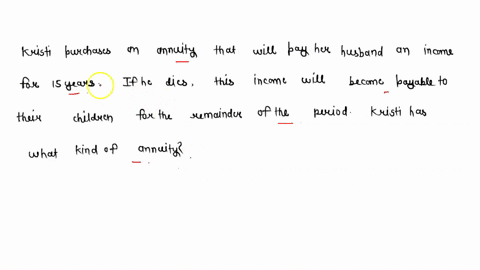 Kristi purchases an annuity that will pay her husband an income
for 15 years. If he dies, this income will become payable to
their children for the remainder of the period. Kristi has
what kind of annuity?